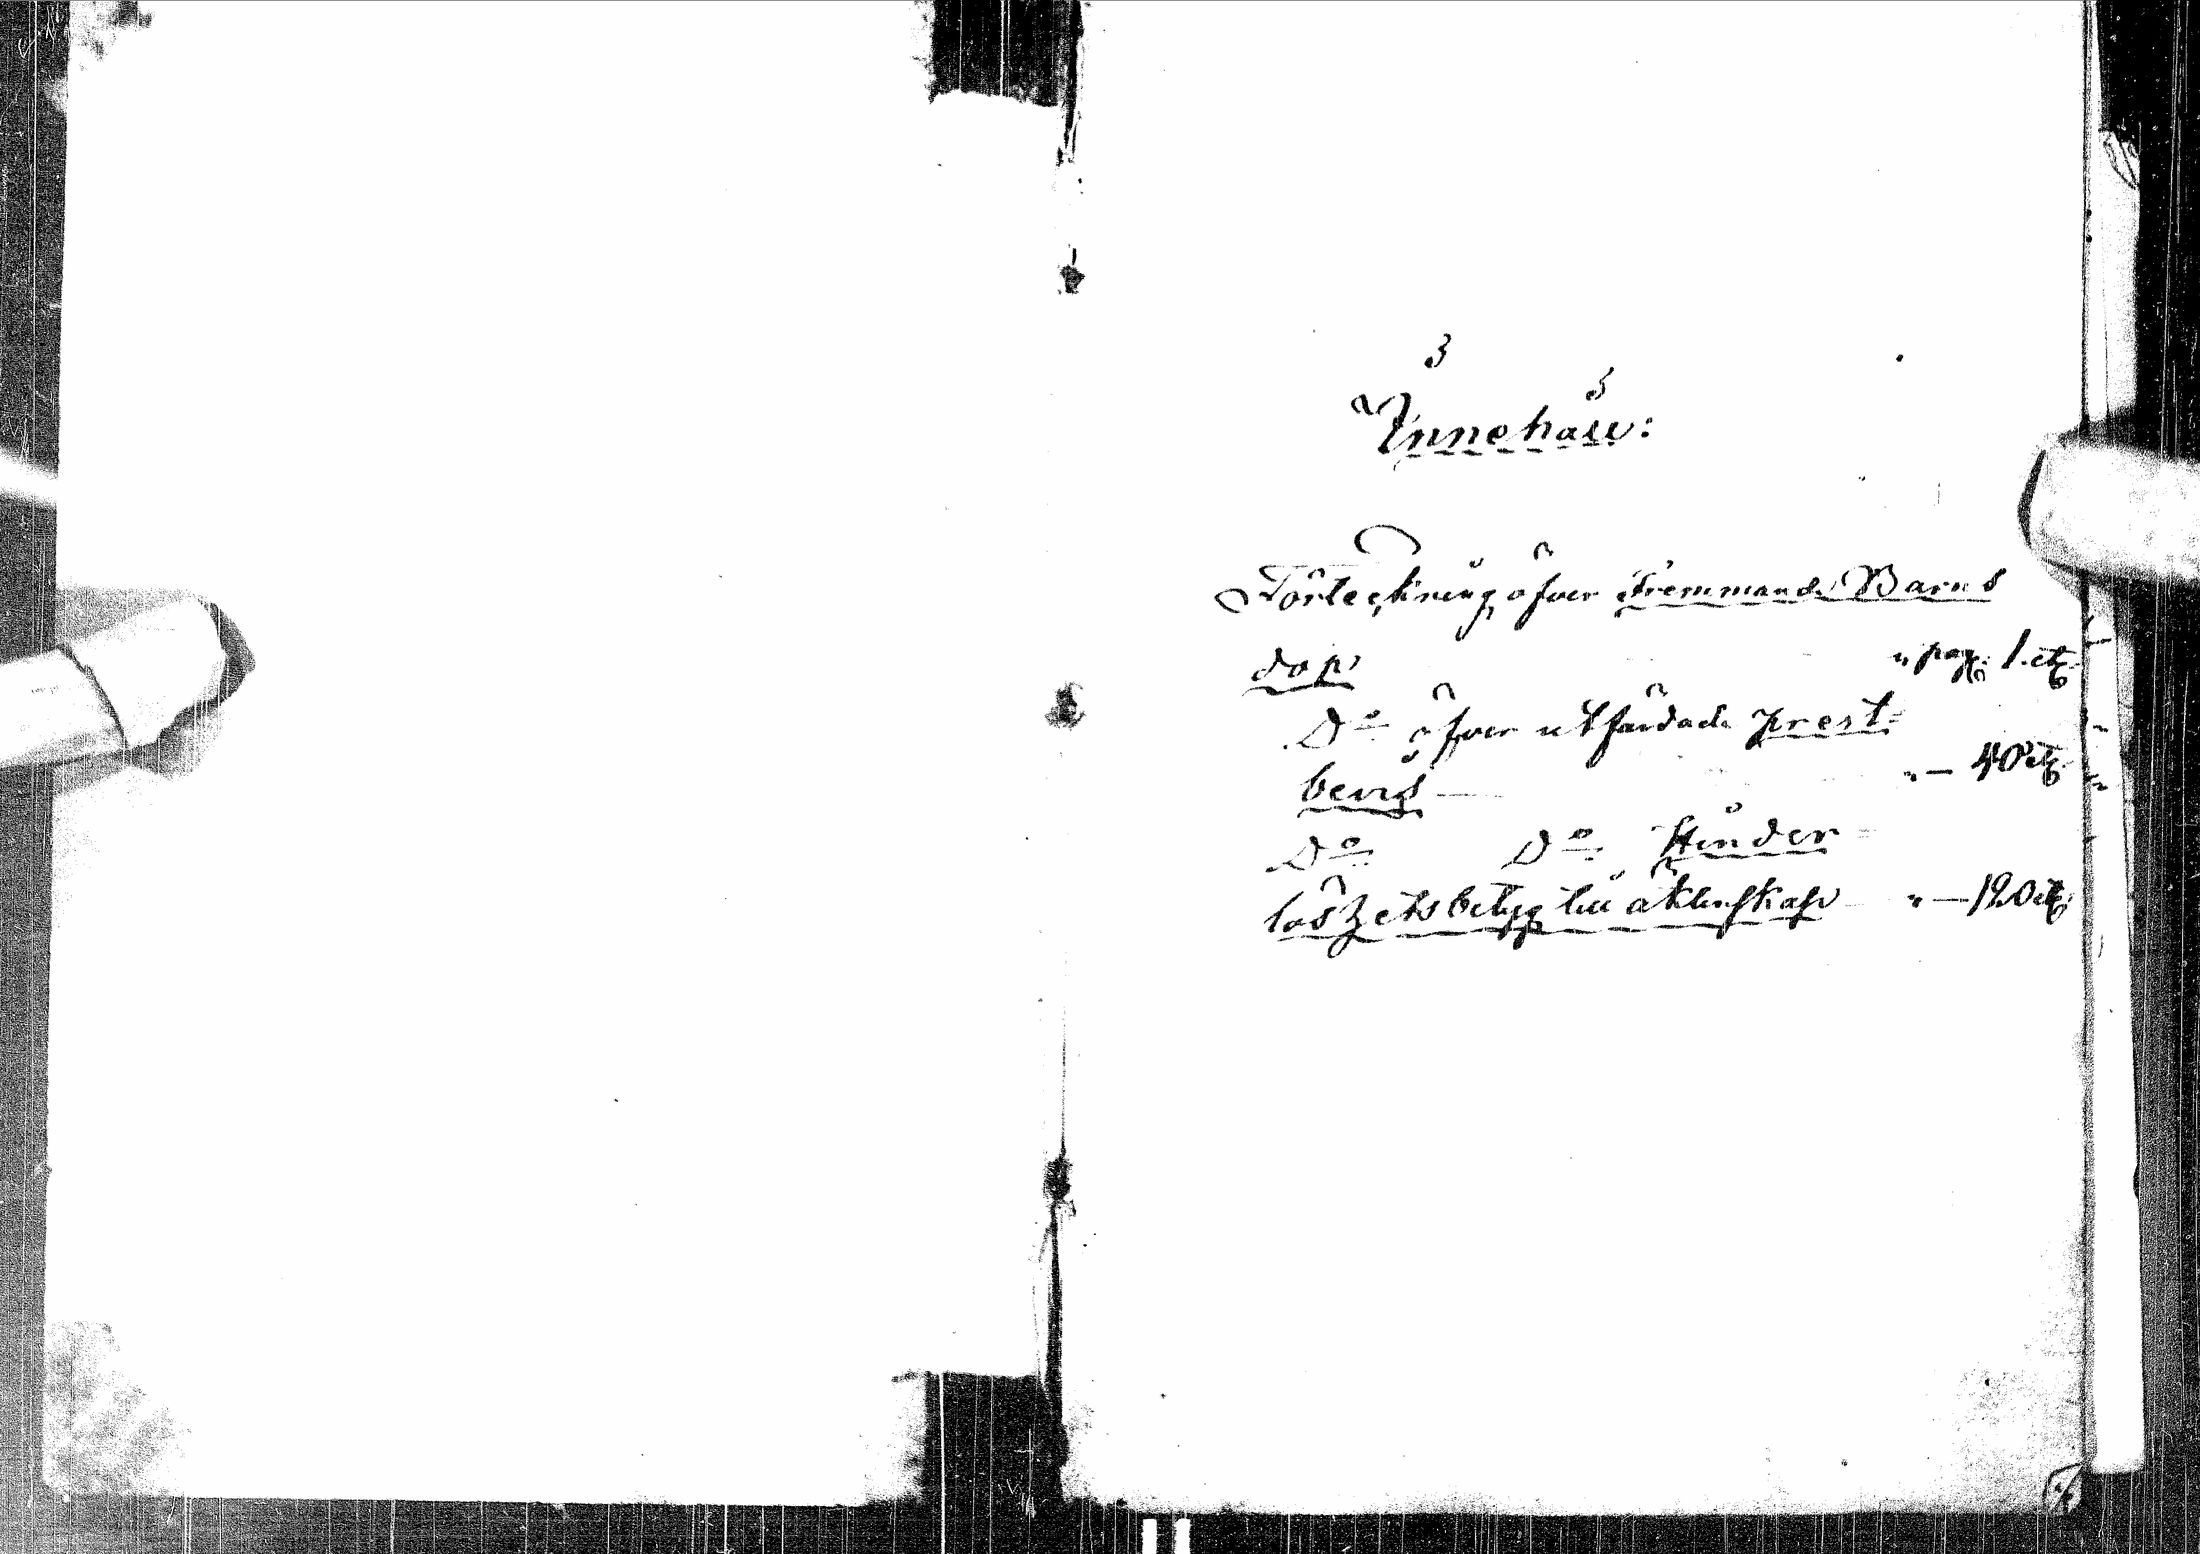 Innehåll:
Förteckning öfver Fremmande Barns
dop " pag: 1. etc.
D:o öfver utfärdade prest-
bevis — " — 40 etc.
D:o D:o Hinder-
löshetsbetyg till äktenskap " — 120 etc.